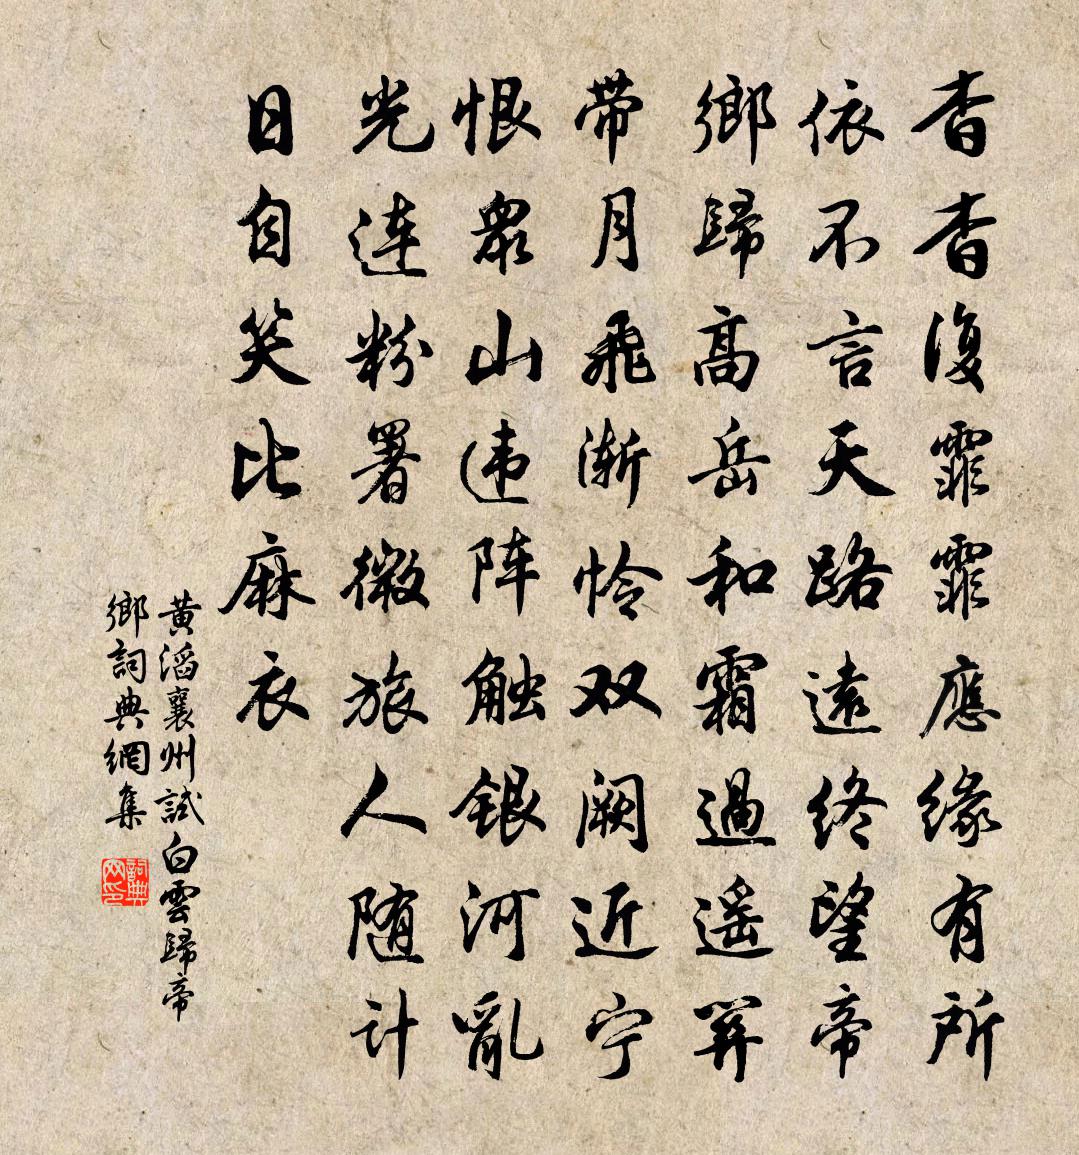 杳杳復霏霏應緣有所
依不言天路遠終望帝
鄉歸髙岳和霜過遥關
带月飛漸怜双阙近宁
恨眾山违阵触銀河亂
光连粉署微旅人随计
日自笑比麻衣
黄滔襄州試白雲歸帝
鄉詞典網集
詞典网印